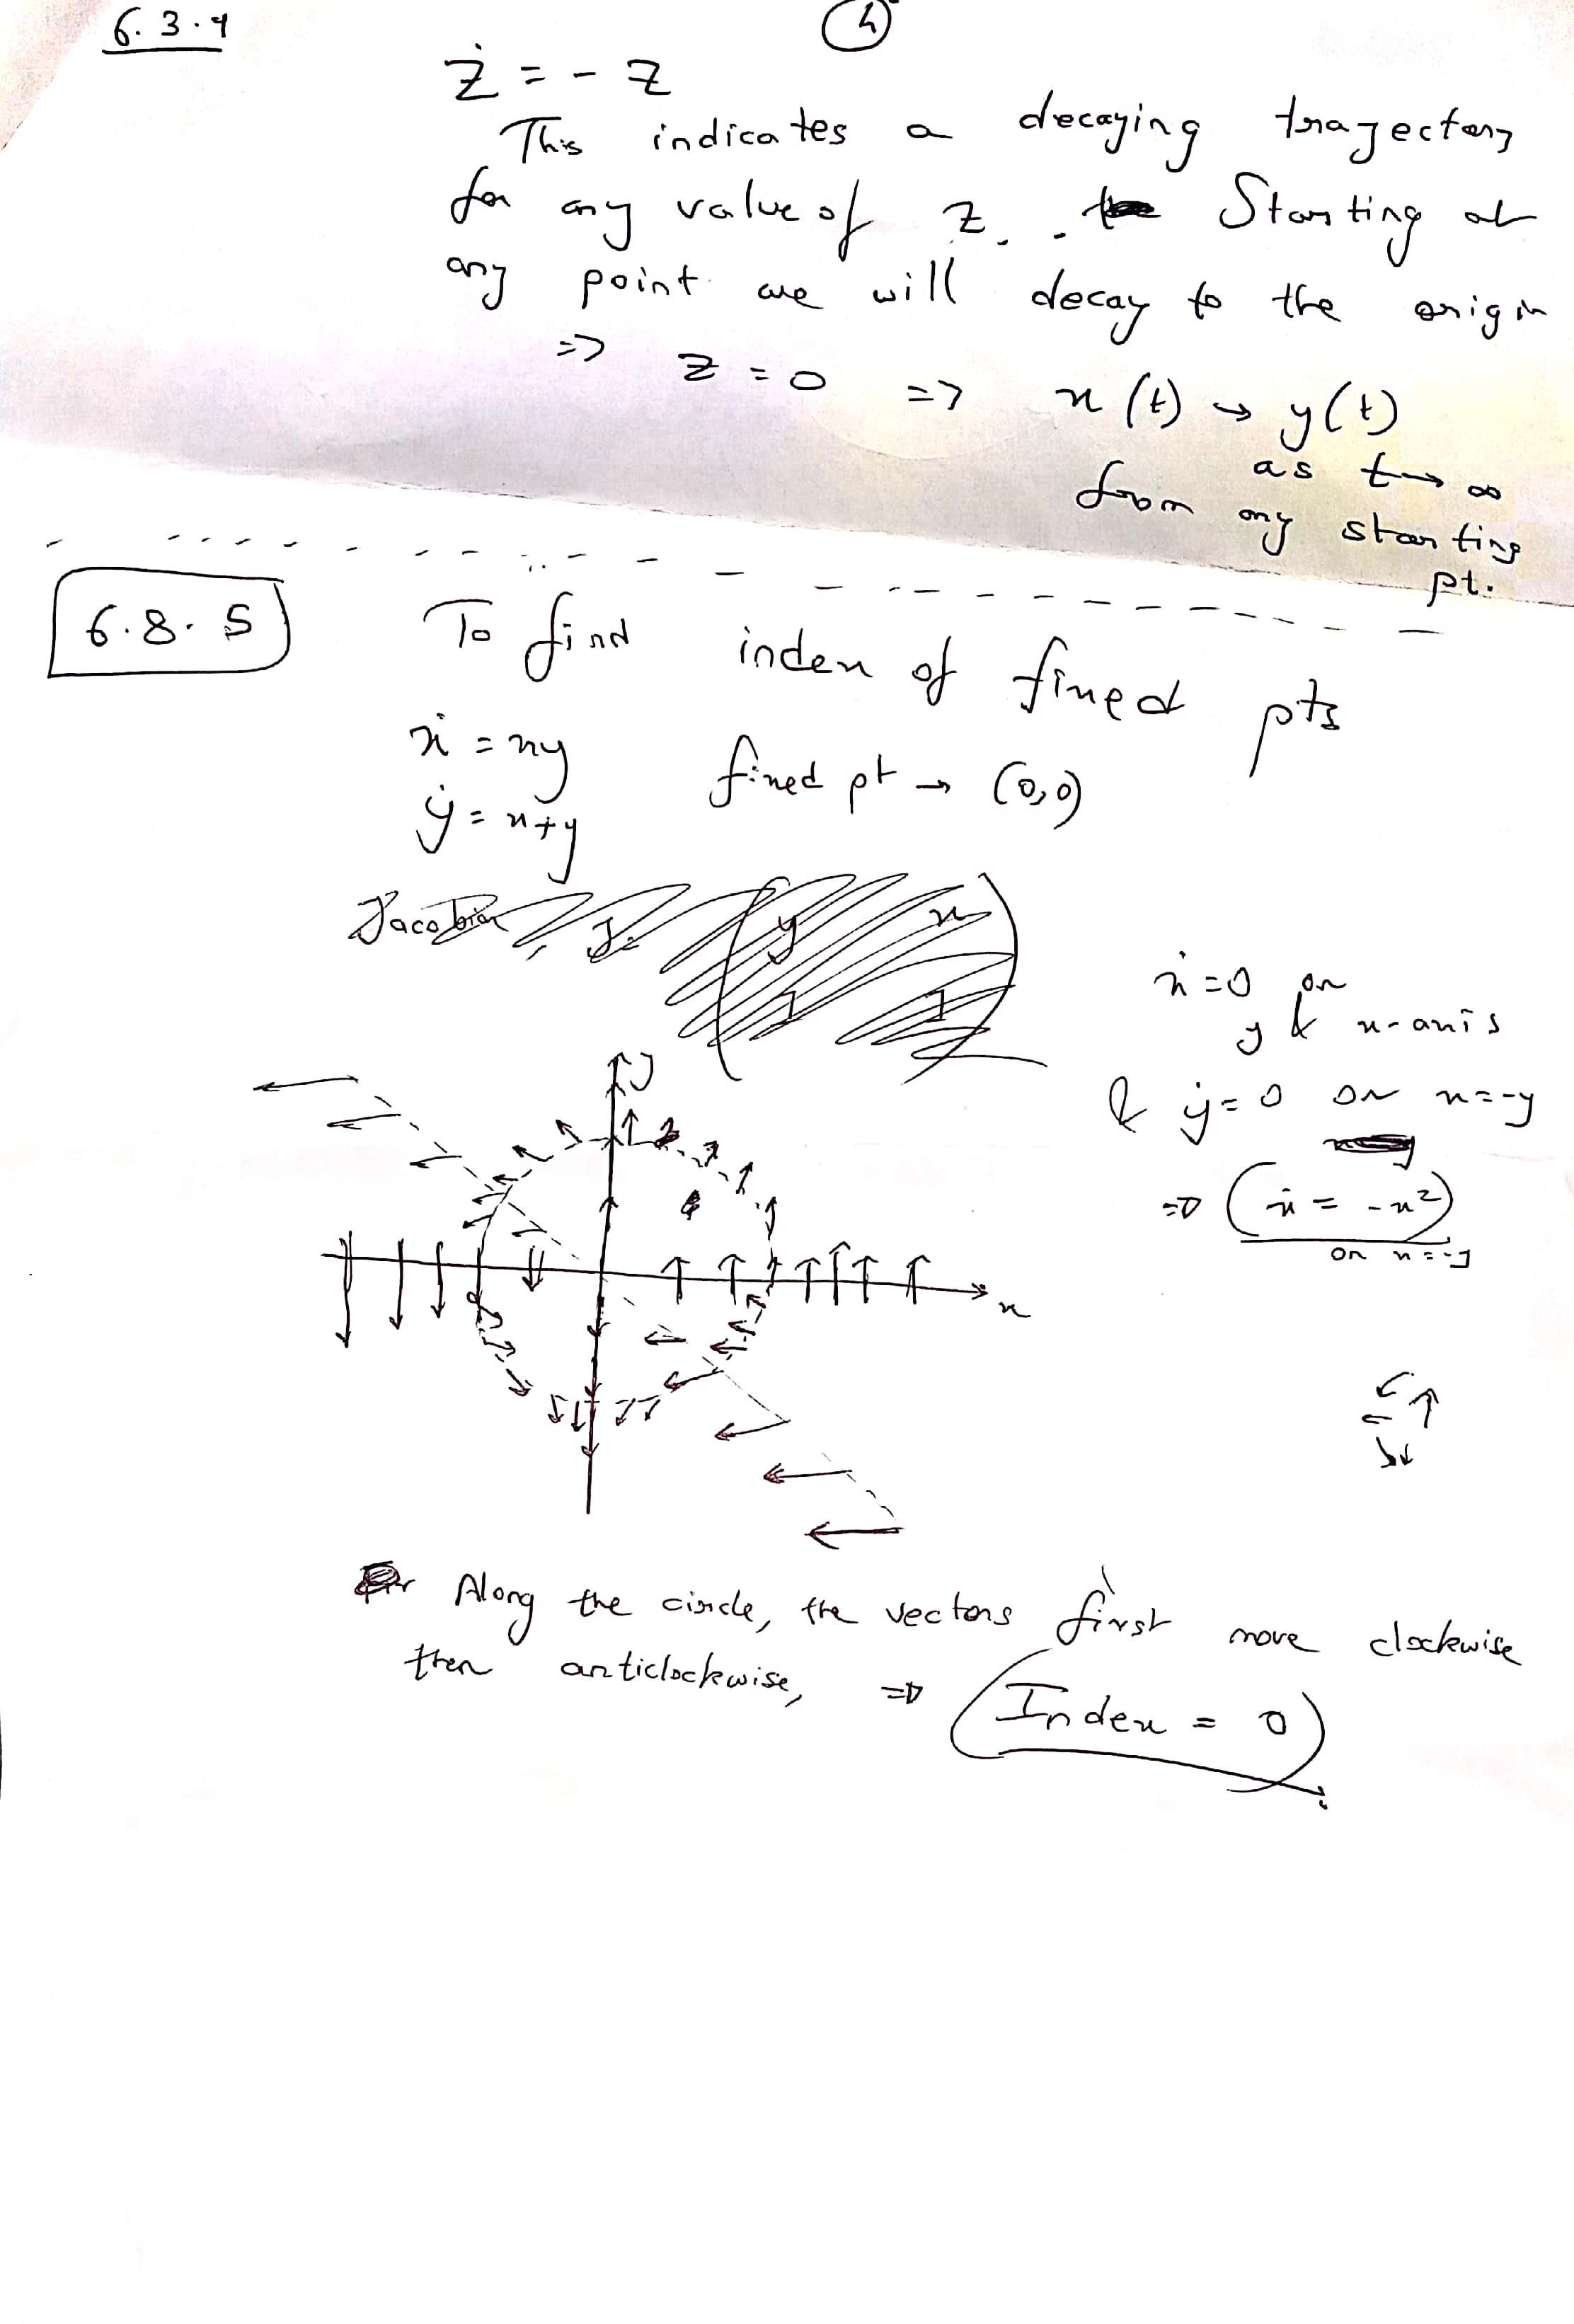 6.3.4
4
ż = - z
This indicates a decaying trajectory
for any value of z. Starting at
any point we will decay to the origin
=> z = 0 => x(t) → y(t)
as t → ∞
from any starting
pt.
6.8.5
To find index of fixed pts
ẋ = xy
ẏ = x+y
fixed pt → (0,0)
Jacobian, J = ( y x
1 1 )
ẋ = 0 on
y & x-axis
& ẏ = 0 on x = -y
=> ẋ = -x²
on x = -y
y
x
Along the circle, the vectors first move clockwise
then anticlockwise, => Index = 0